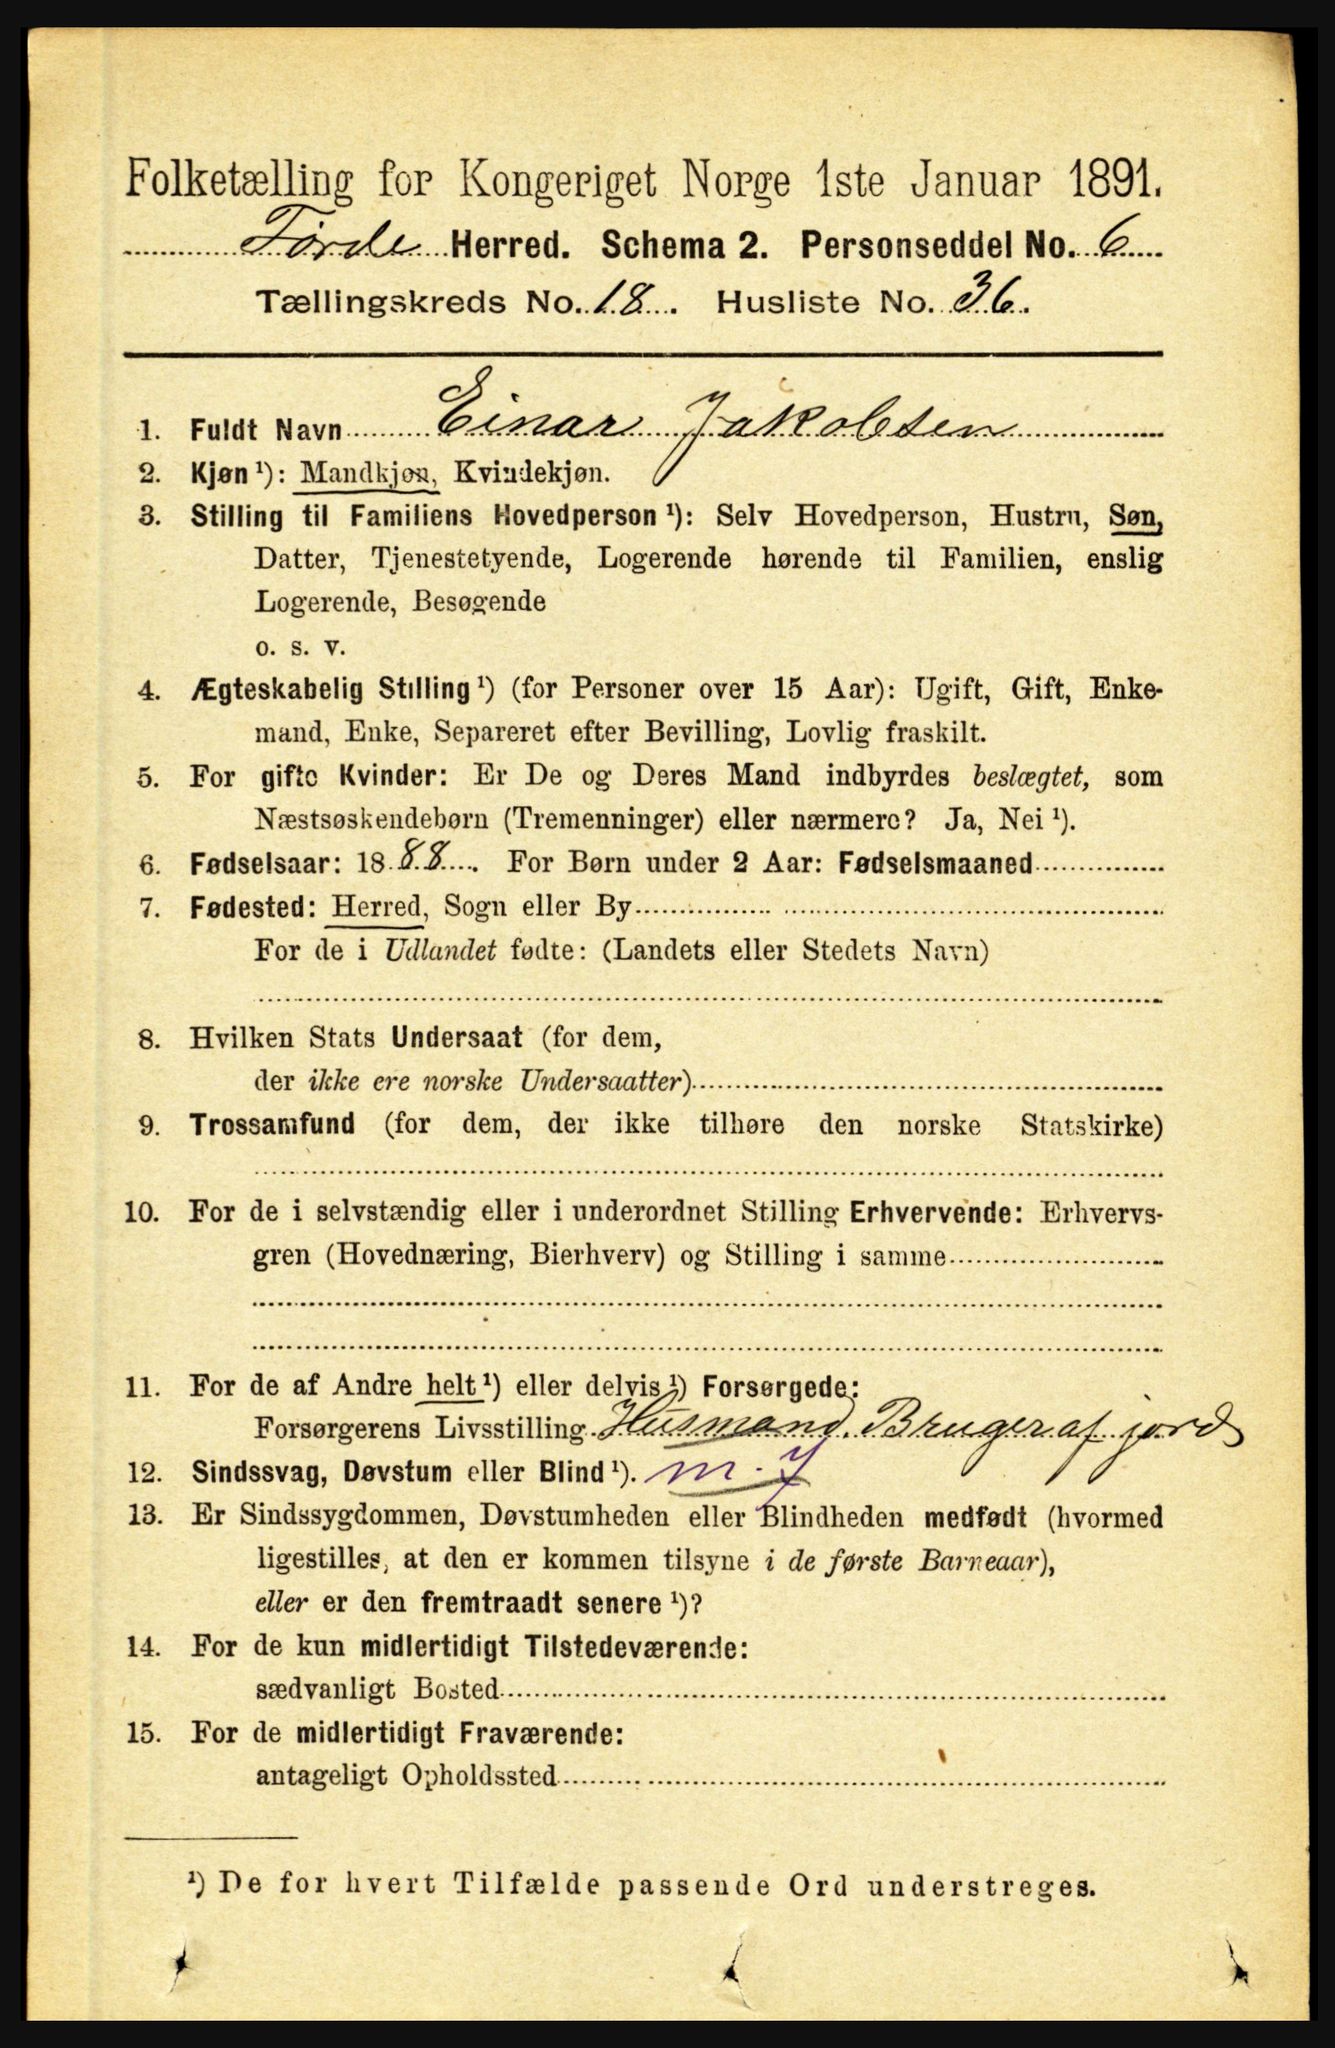 Folketælling for Kongeriget Norge 1ste Januar 1891.
Førde Herred. Schema 2. Personseddel No. 6
Tællingskreds No. 18. Husliste No. 36.
1. Fuldt Navn Einar Jakobsen
2. Kjøn ¹): Mandkjøn, Kvindekjøn.
3. Stilling til Familiens Hovedperson ¹): Selv Hovedperson, Hustru, Søn,
Datter, Tjenestetyende, Logerende hørende til Familien, enslig
Logerende, Besøgende
o. s. v.
4. Ægteskabelig Stilling ¹) (for Personer over 15 Aar): Ugift, Gift, Enke-
mand, Enke, Separeret efter Bevilling, Lovlig fraskilt.
5. For gifte Kvinder: Er De og Deres Mand indbyrdes beslægtet, som
Næstsøskendebørn (Tremenninger) eller nærmere? Ja, Nei ¹).
6. Fødselsaar: 1888. For Børn under 2 Aar: Fødselsmaaned
7. Fødested: Herred, Sogn eller By
For de i Udlandet fødte: (Landets eller Stedets Navn)
8. Hvilken Stats Undersaat (for dem,
der ikke ere norske Undersaatter)
9. Trossamfund (for dem, der ikke tilhøre den norske Statskirke)
10. For de i selvstændig eller i underordnet Stilling Erhvervende: Erhvervs-
gren (Hovednæring, Bierhverv) og Stilling i samme
11. For de af Andre helt ¹) eller delvis ¹) Forsørgede:
Forsørgerens Livsstilling Husmand. Bruger af jord
12. Sindssvag, Døvstum eller Blind ¹). m. 7
13. Er Sindssygdommen, Døvstumheden eller Blindheden medfødt (hvormed
ligestilles, at den er kommen tilsyne i de første Barneaar),
eller er den fremtraadt senere ¹)?
14. For de kun midlertidigt Tilstedeværende:
sædvanligt Bosted
15. For de midlertidigt Fraværende:
antageligt Opholdssted
¹) De for hvert Tilfælde passende Ord understreges.